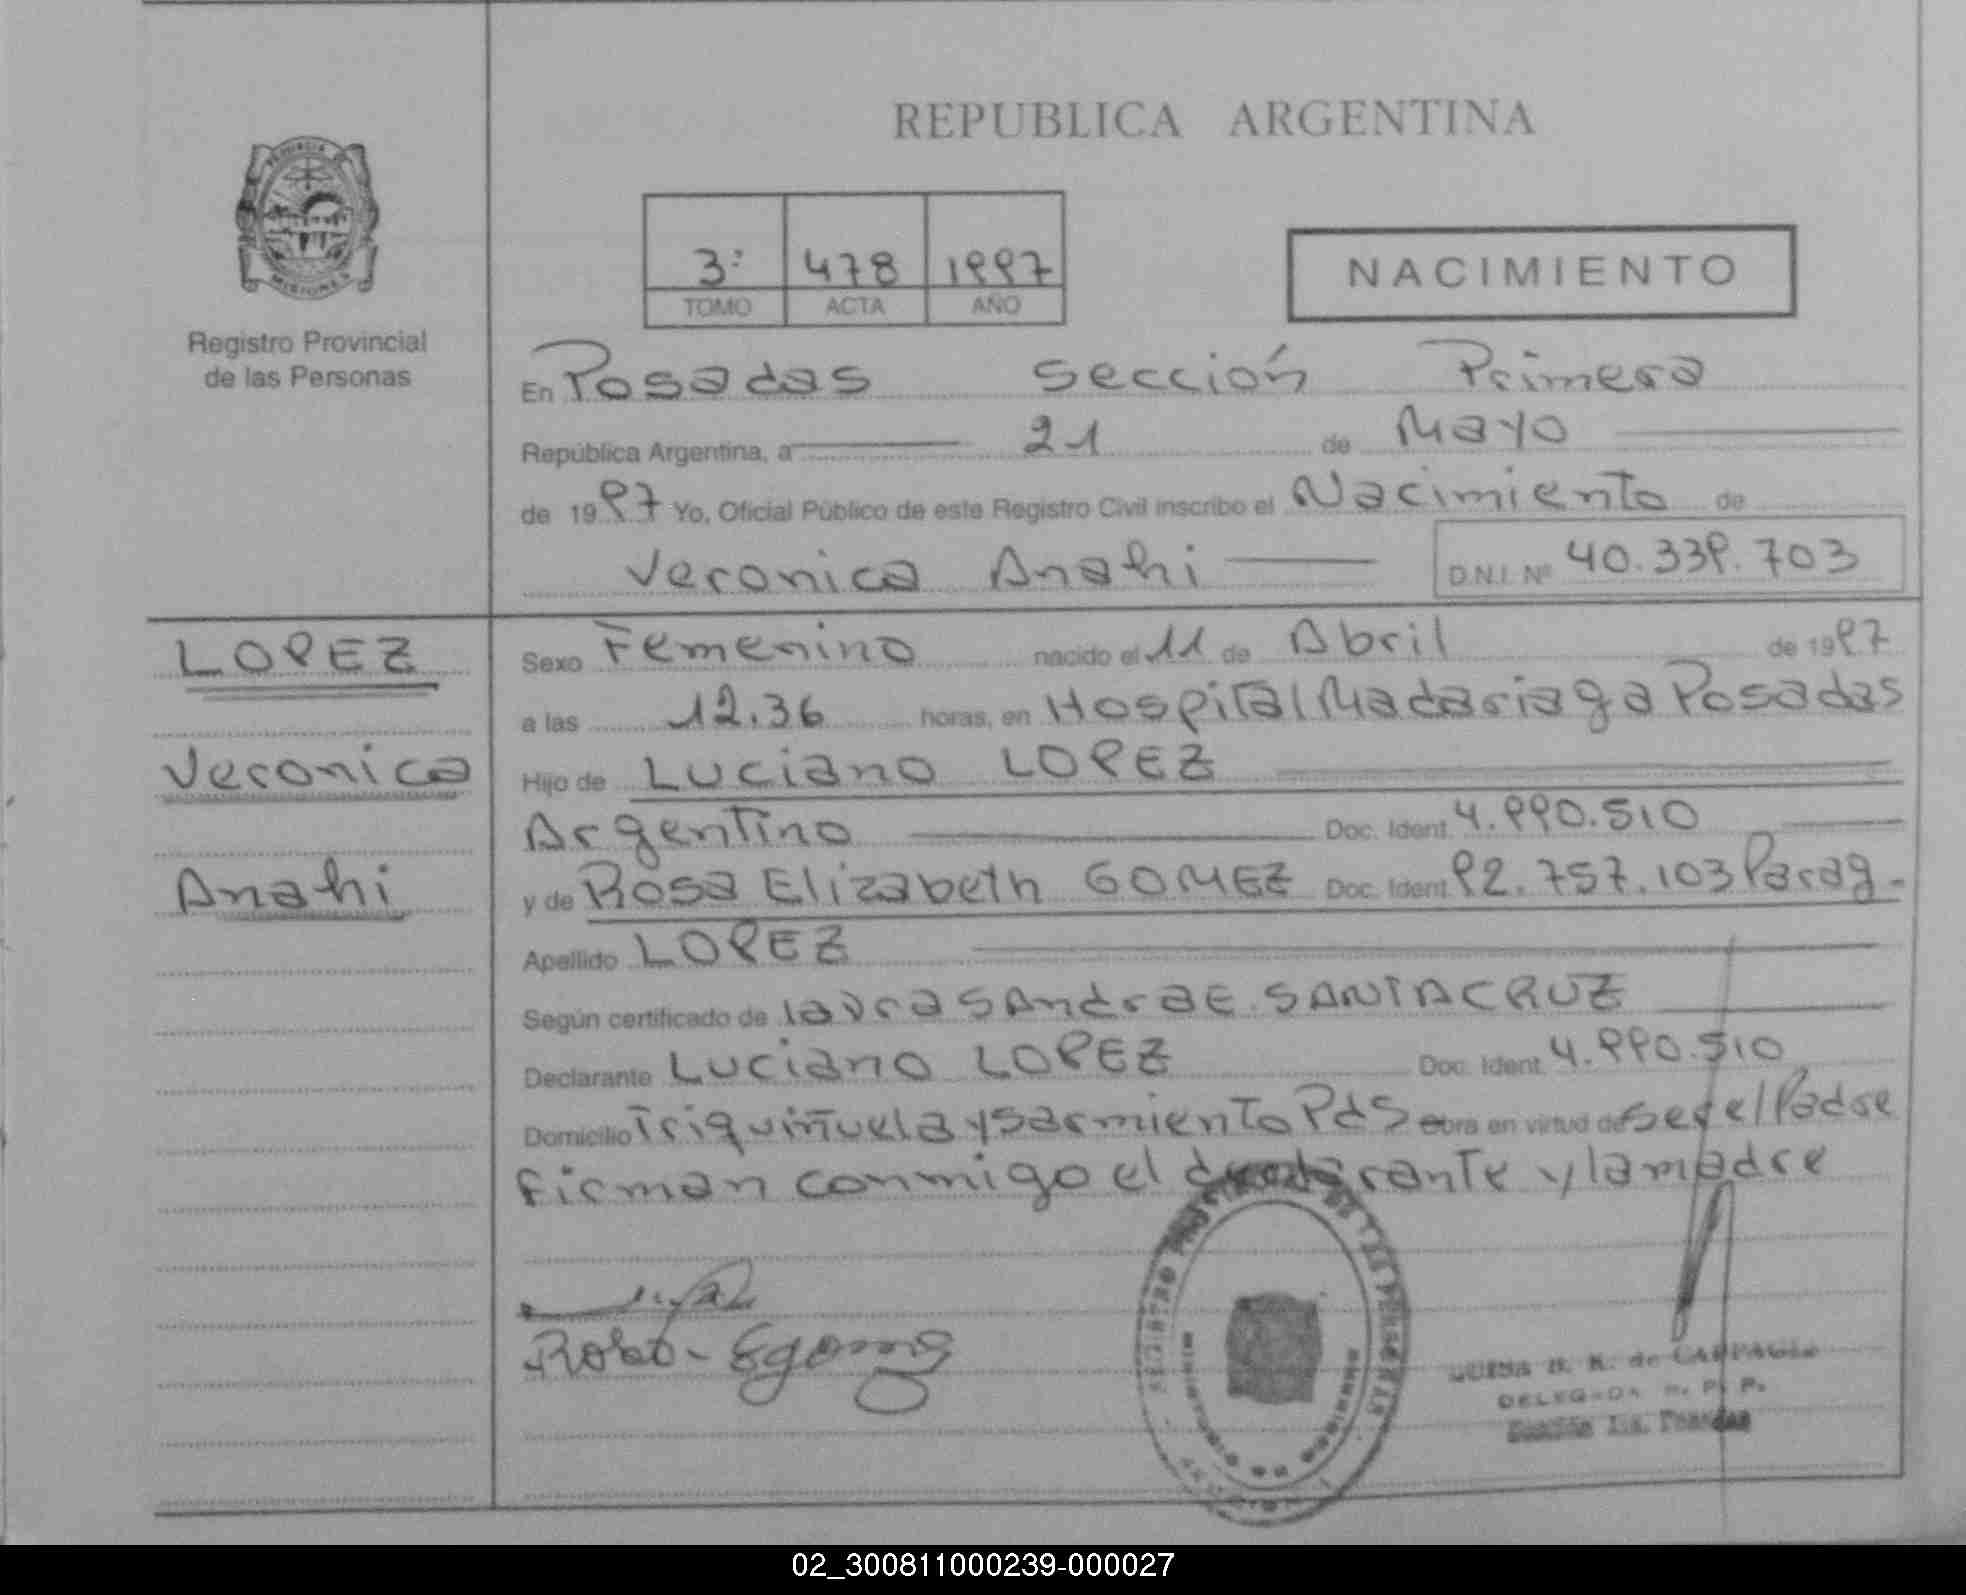 REPUBLICA ARGENTINA
PROVINCIA DE
MISIONES
Registro Provincial
de las Personas
3º 478 1997
TOMO ACTA AÑO
NACIMIENTO
En Posadas sección Primera
República Argentina, a 21 de Mayo
de 1997 Yo, Oficial Público de este Registro Civil inscribo el Nacimiento de
Veronica Anahi D.N.I. Nº 40.339.703
LOPEZ
Veronica
Anahi
Sexo Femenino nacido el 11 de Abril de 1997
a las 12.36 horas, en Hospital Madariaga Posadas
Hijo de Luciano LOPEZ
Argentino Doc. Ident. 4.990.510
y de Rosa Elizabeth GOMEZ Doc. Ident. 92.757.103 Parag.
Apellido LOPEZ
Según certificado de laura Sandra E. SANTACRUZ
Declarante Luciano LOPEZ Doc. Ident. 4.990.510
Domicilio Triquiñuela y Sarmiento PdS obra en virtud de ser el Padre
Firman conmigo el declarante y la madre
REGISTRO PROVINCIAL DE LAS PERSONAS
MISIONES
DELEGADA R. P. P.
Sección 1a. Posadas
02_300811000239-000027